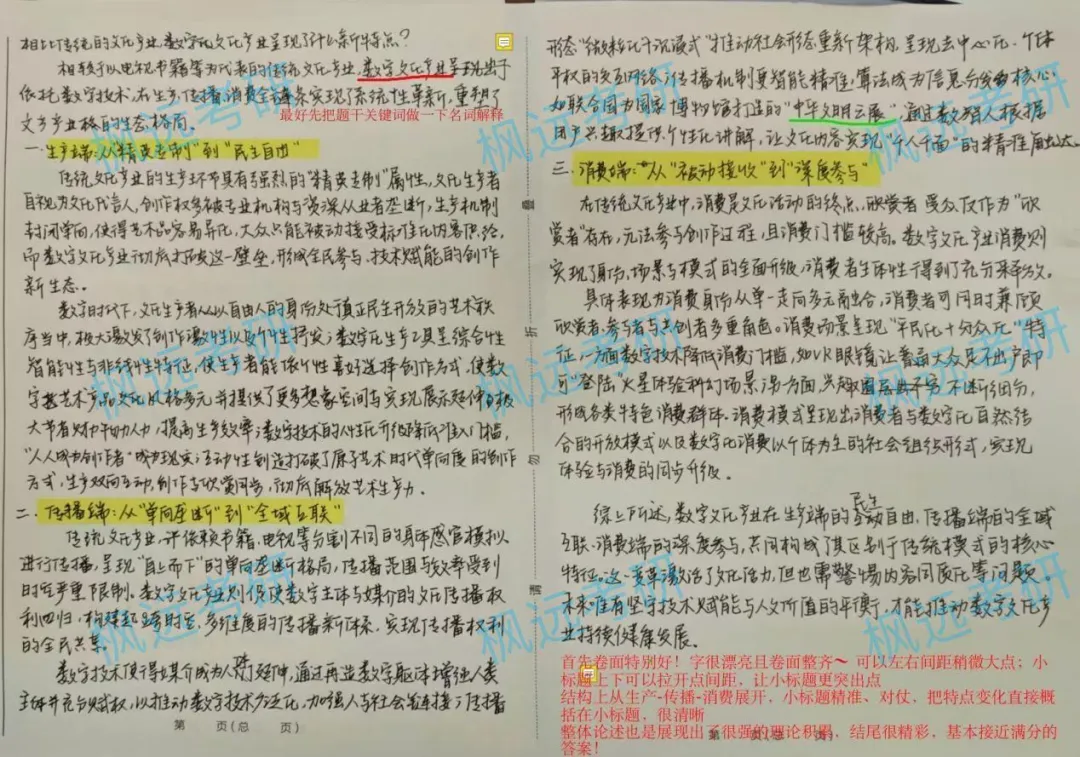 相比传统的文化产业,数字化文化产业呈现了什么新特点?
相较于以电视书籍等为代表的传统文化产业,数字文化产业呈现出了
依托数字技术,在生产、传播、消费全链条实现了系统性革新,重塑了
文
产业
的生态格局。
最好先把题干关键词做一下名词解释
一.生产端:从"精英专制"到"民主自由"
传统文化产业的生产环节具有强烈的"精英专制"属性,文化生产者
自视为文化代言人,创作权多被专业机构与资深从业者垄断,生产机制
封闭单向,使得艺术品容易异化,大众只能被动接受标准化内容供给,
而数字文化产业彻底打破这一壁垒,形成全民参与、技术赋能的创作
新生态。
数字时代下,文化生产者以自由人的身份处
真正民主开放的艺术秩
序当中,极大激发了创作激
性以及个性
;数字化生产工具呈综合性
智能性与非线性特征,使生产者能依个性喜好选择创作方式,使数
字
艺术产品文化风格多元,并提供了更多想象空间与实现展示
极
大节省
人力,提高生产效率;数字技术的人性化升级降低准入门槛,
"人人成为创作者"成为现实;互动性创造打破了原子艺术时代单向度的创作
方式,生产双向互动,创作与欣赏同步,彻底解放艺术生产力。
二.传播端:从"单向垄断"到"全域互联"
传统文化产业
依赖书籍、电视等分割不同的身体感官模拟
进行传播,呈现"自上而下"的单向垄断格局,传播范围与效率受到
时空严重限制。数字文化产业则促使数字主体与媒介的文化传播权
利回归,构建起跨时空、多维度的传播新体系,实现传播权利
的全民共享。
数字技术使得媒介成为人体延伸,通过再造数字躯体增强人类
主体并充分赋权,以推动数字技术
泛化,加强人与社会
连接;传播
第 页(总 页)
形态"微粒化+沉浸式"推动社会形态重新架构,呈现去中心化、个体
平权的交互网络;传播机制更智能精准,算法成为信息分发的核心
如联合国为国家博物馆打造的"中华文明云展",通过数智人根据
用户兴趣提供个性化讲解,让文化内容实现"千人千面"的精准触达。
三.消费端:从"被动接收"到"深度参与"
在传统文化产业中,消费是文化活动的终点,欣赏者受众仅作为"欣
赏者"存在,无法参与创作过程,且消费门槛较高。数字文化产业消费则
实现了身份、场景与模式的全面升级,消费者主体性得到了充分释放。
具体表现为消费身份从单一走向多元融合,消费者可同时兼顾
欣赏者、参与者与共创者多重角色。消费场景呈现"平民化+分众化"特
征,一方面数字技术降低消费门槛,如VR眼镜让普通大众足不出户即
可"登陆"火星体验科幻场景;另一方面,兴趣圈层
不断细分,
形成各类特色消费群体。消费模式呈现出消费者与数字化自然结
合的开放模式以及数字化消费以个体为主的社会组织形式,实现
体验与消费的同步升级。
综上所述,数字文化产业在生产端的民主自由,传播端的全域
互联、消费端的深度参与,共同构成了其区别于传统模式的核心
特征。这一变革激活了文化活力,但也需警惕内容同质化等问题。
未来唯有坚守技术赋能与人文价值的平衡,才能推动数字文化产
业持续健康发展。
首先卷面特别好!字很漂亮且卷面整齐~ 可以左右间距稍微大点;小
标题上下可以拉开点间距,让小标题更突出点
结构上从生产-传播-消费展开,小标题精准、对仗,把特点变化直接概
括在小标题,很清晰
整体论述也是展现出了很强的理论积累,结尾很精彩,基本接近满分的
答案!
叠
折
勿
清
枫远考研